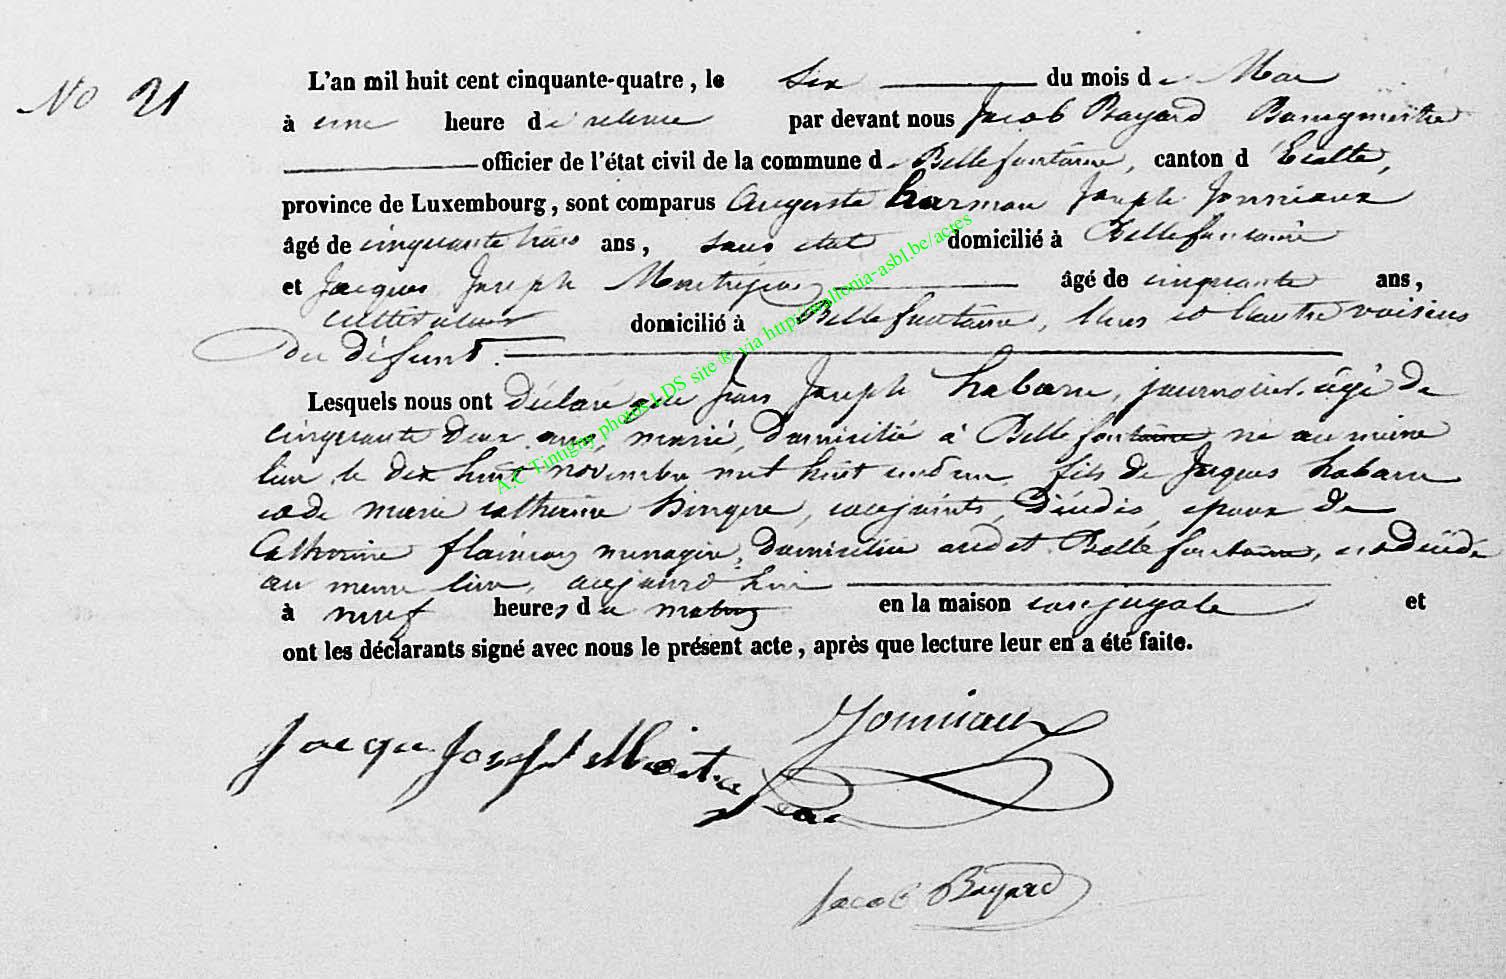 No 21
L'an mil huit cent cinquante-quatre, le six du mois de Mai
à une heure de relevée par devant nous Jacob Bayard Bourgmestre
officier de l'état civil de la commune de Bellefontaine, canton d'Etalle,
province de Luxembourg, sont comparus Auguste harman Joseph Jonniaux
âgé de cinquante trois ans, sans etat, domicilié à Bellefontaine
et Jacques Joseph âgé de cinquante ans,
cultivateur domicilié à Bellefontaine, l'un et l'autre voisins
du défunt.
Lesquels nous ont déclaré que Jean Joseph habaru, journalier, âgé de
cinquante deux ans, marié, domicilié à Bellefontaine né au même
lieu le dix huit novembre mil huit cent un fils de Jacques habaru
et de marie catherine hingue, conjoints, décédés, epoux de
Catherine menagère, domiciliée audit Bellefontaine, est décédé
au même lieu, aujourd'hui
à neuf heures du matin en la maison conjugale et
ont les déclarants signé avec nous le présent acte, après que lecture leur en a été faite.
Jonniaux
Jacque Joseph
Jacob Bayard
A.C Tintigny photos LDS site ® via http://wallonia-asbl.be/actes